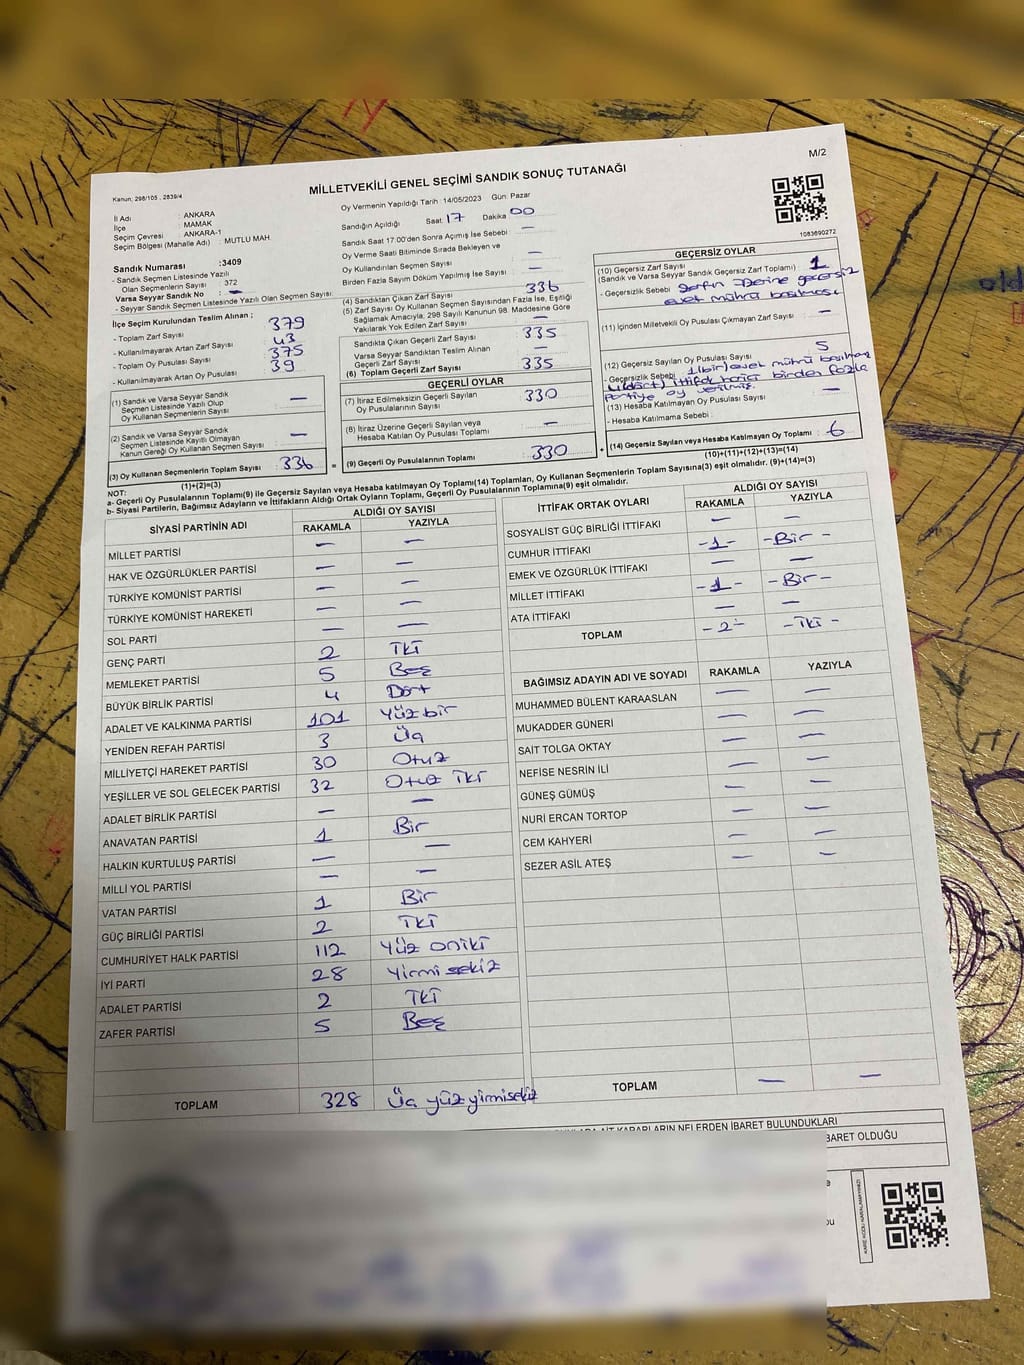 M/2
MİLLETVEKİLİ GENEL SEÇİMİ SANDIK SONUÇ TUTANAĞI
Kanun; 298/105 , 2839/4
İl Adı : ANKARA
İlçe : MAMAK
Seçim Çevresi : ANKARA-1
Seçim Bölgesi (Mahalle Adı) : MUTLU MAH.
Sandık Numarası :3409
- Sandık Seçmen Listesinde Yazılı
Olan Seçmenlerin Sayısı : 372
Varsa Seyyar Sandık No : —
- Seyyar Sandık Seçmen Listesinde Yazılı Olan Seçmen Sayısı:
İlçe Seçim Kurulundan Teslim Alınan ;
- Toplam Zarf Sayısı : 379
- Kullanılmayarak Artan Zarf Sayısı : 43
- Toplam Oy Pusulası Sayısı : 375
- Kullanılmayarak Artan Oy Pusulası : 39
(1) Sandık ve Varsa Seyyar Sandık
Seçmen Listesinde Yazılı Olup
Oy Kullanan Seçmenlerin Sayısı : —
(2) Sandık ve Varsa Seyyar Sandık
Seçmen Listesinde Kayıtlı Olmayan
Kanun Gereği Oy Kullanan Seçmen Sayısı : —
(3) Oy Kullanan Seçmenlerin Toplam Sayısı : 336
(1)+(2)=(3)
Oy Vermenin Yapıldığı Tarih : 14/05/2023 Gün: Pazar
Sandığın Açıldığı Saat: 17 Dakika 00
Sandık Saat 17:00'den Sonra Açılmış İse Sebebi : —
Oy Verme Saati Bitiminde Sırada Bekleyen ve
Oy Kullandırılan Seçmen Sayısı : —
Birden Fazla Sayım Döküm Yapılmış İse Sayısı : —
(4) Sandıktan Çıkan Zarf Sayısı : 336
(5) Zarf Sayısı Oy Kullanan Seçmen Sayısından Fazla İse, Eşitliği
Sağlamak Amacıyla, 298 Sayılı Kanunun 98. Maddesine Göre
Yakılarak Yok Edilen Zarf Sayısı : —
Sandıkta Çıkan Geçerli Zarf Sayısı : 335
Varsa Seyyar Sandıktan Teslim Alınan
Geçerli Zarf Sayısı : —
(6) Toplam Geçerli Zarf Sayısı : 335
GEÇERLİ OYLAR
(7) İtiraz Edilmeksizin Geçerli Sayılan
Oy Pusulalarının Sayısı : 330
(8) İtiraz Üzerine Geçerli Sayılan veya
Hesaba Katılan Oy Pusulası Toplamı : —
= (9) Geçerli Oy Pusulalarının Toplamı : 330
1083690272
GEÇERSİZ OYLAR
(10) Geçersiz Zarf Sayısı
(Sandık ve Varsa Seyyar Sandık Geçersiz Zarf Toplamı) : 1
- Geçersizlik Sebebi : Zarfın üzerine geçersiz
evet mührü basılması
(11) İçinden Milletvekili Oy Pusulası Çıkmayan Zarf Sayısı : —
(12) Geçersiz Sayılan Oy Pusulası Sayısı : 5
- Geçersizlik Sebebi : 1(bir) evet mührü basılmaz
4(dört) ittifak harici birden fazla
Partiye oy verilmiş.
(13) Hesaba Katılmayan Oy Pusulası Sayısı : —
- Hesaba Katılmama Sebebi :
+ (14) Geçersiz Sayılan veya Hesaba Katılmayan Oy Toplamı : 6
(10)+(11)+(12)+(13)=(14)
NOT:
a- Geçerli Oy Pusulalarının Toplamı(9) ile Geçersiz Sayılan veya Hesaba Katılmayan Oy Toplamı(14) Toplamları, Oy Kullanan Seçmenlerin Toplam Sayısına(3) eşit olmalıdır. (9)+(14)=(3)
b- Siyasi Partilerin, Bağımsız Adayların ve İttifakların Aldığı Ortak Oyların Toplamı, Geçerli Oy Pusulalarının Toplamına(9) eşit olmalıdır.
SİYASİ PARTİNİN ADI ALDIĞI OY SAYISI
RAKAMLA YAZIYLA
MİLLET PARTİSİ — —
HAK VE ÖZGÜRLÜKLER PARTİSİ — —
TÜRKİYE KOMÜNİST PARTİSİ — —
TÜRKİYE KOMÜNİST HAREKETİ — —
SOL PARTİ — —
GENÇ PARTİ 2 İki
MEMLEKET PARTİSİ 5 Beş
BÜYÜK BİRLİK PARTİSİ 4 Dört
ADALET VE KALKINMA PARTİSİ 101 Yüz bir
YENİDEN REFAH PARTİSİ 3 Üç
MİLLİYETÇİ HAREKET PARTİSİ 30 Otuz
YEŞİLLER VE SOL GELECEK PARTİSİ 32 Otuz İki
ADALET BİRLİK PARTİSİ — —
ANAVATAN PARTİSİ 1 Bir
HALKIN KURTULUŞ PARTİSİ — —
MİLLİ YOL PARTİSİ — —
VATAN PARTİSİ 1 Bir
GÜÇ BİRLİĞİ PARTİSİ 2 İki
CUMHURİYET HALK PARTİSİ 112 Yüz oniki
İYİ PARTİ 28 Yirmi sekiz
ADALET PARTİSİ 2 İki
ZAFER PARTİSİ 5 Beş
TOPLAM 328 Üç yüz yirmisekiz
İTTİFAK ORTAK OYLARI ALDIĞI OY SAYISI
RAKAMLA YAZIYLA
SOSYALİST GÜÇ BİRLİĞİ İTTİFAKI — —
CUMHUR İTTİFAKI -1- -Bir-
EMEK VE ÖZGÜRLÜK İTTİFAKI — —
MİLLET İTTİFAKI -1- -Bir-
ATA İTTİFAKI — —
TOPLAM -2- -İki-
BAĞIMSIZ ADAYIN ADI VE SOYADI RAKAMLA YAZIYLA
MUHAMMED BÜLENT KARAASLAN — —
MUKADDER GÜNERİ — —
SAİT TOLGA OKTAY — —
NEFİSE NESRİN İLİ — —
GÜNEŞ GÜMÜŞ — —
NURİ ERCAN TORTOP — —
CEM KAHYERİ — —
SEZER ASİL ATEŞ — —
TOPLAM — —
KARARLARIN NELERDEN İBARET BULUNDUKLARI
BARET OLDUĞU